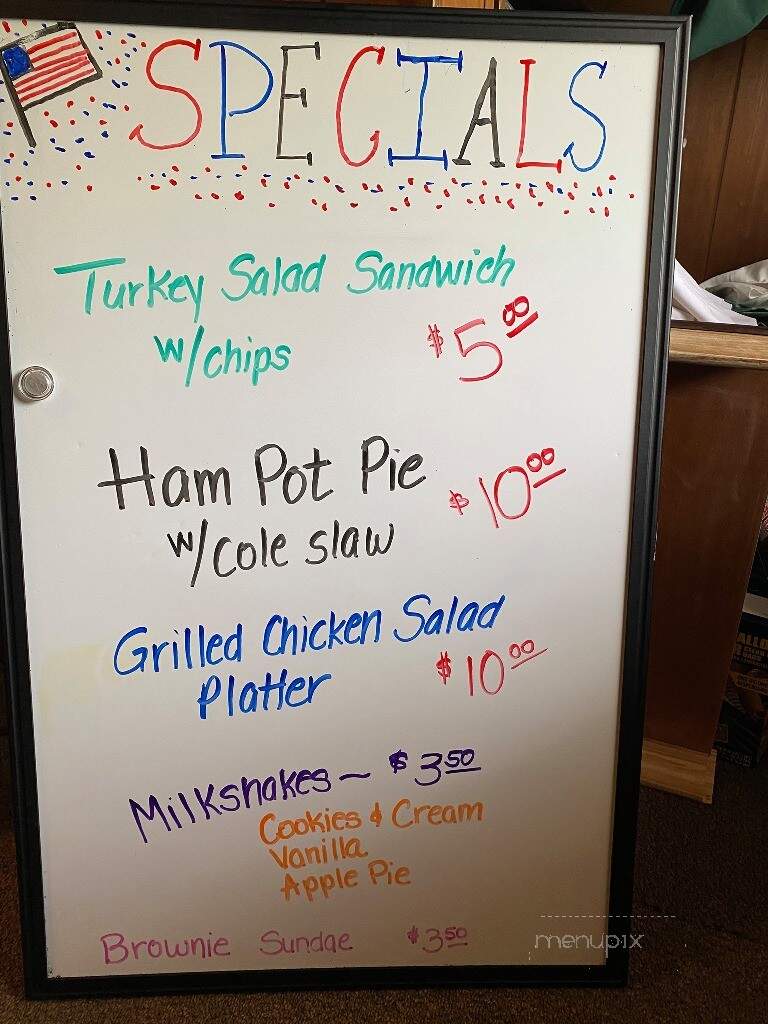 SPECIALS
Turkey Salad Sandwich
w/chips $5.00
Ham Pot Pie $10.00
w/cole slaw
Grilled Chicken Salad
Platter $10.00
Milkshakes - $3.50
Cookies & Cream
Vanilla
Apple Pie
Brownie Sundae $3.50
menupix